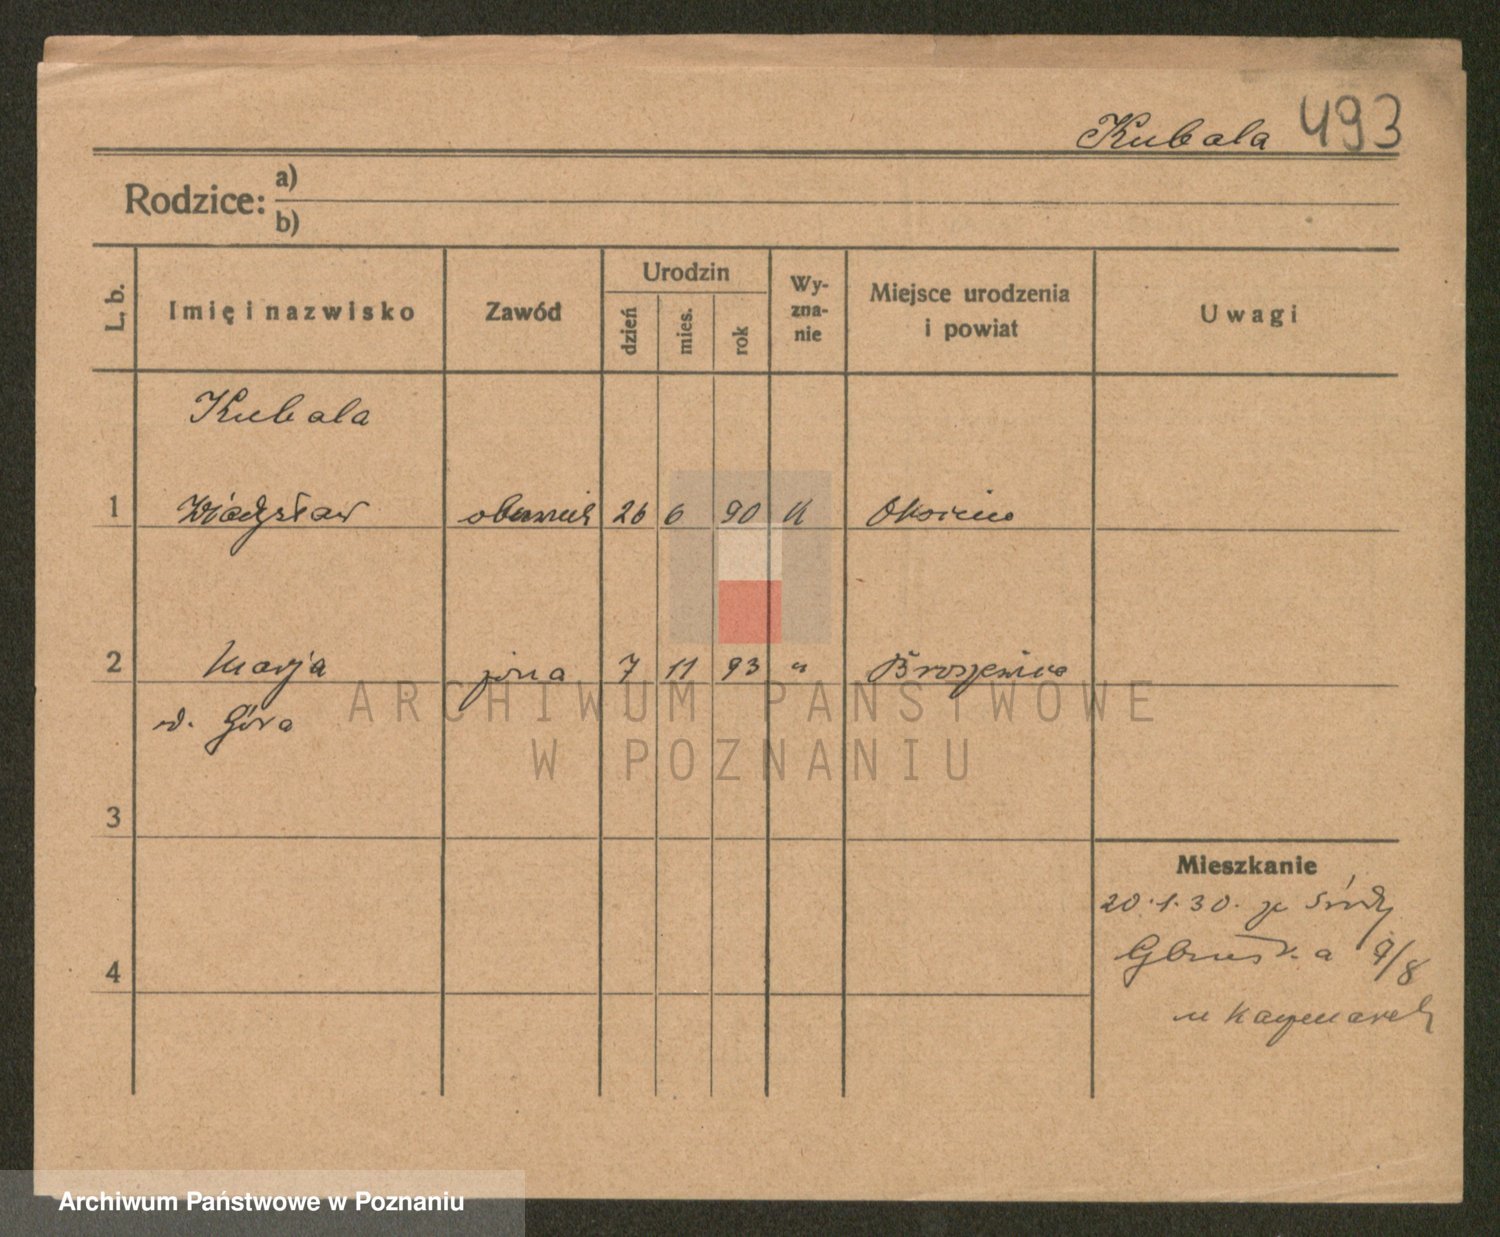 Kubala 493
Rodzice: a)
b)
L. b.
Imię i nazwisko
Zawód
Urodzin
dzień
mies.
rok
Wy-
zna-
nie
Miejsce urodzenia
i powiat
Uwagi
Kubala
1 Władysław 26 6 90 K
2 Marja żona 7 11 93 "
d. Góra
3
Mieszkanie
20.1.30. ze Środy
9/8
4
u Kaczmarek
ARCHIWUM PAŃSTWOWE
W POZNANIU
Archiwum Państwowe w Poznaniu